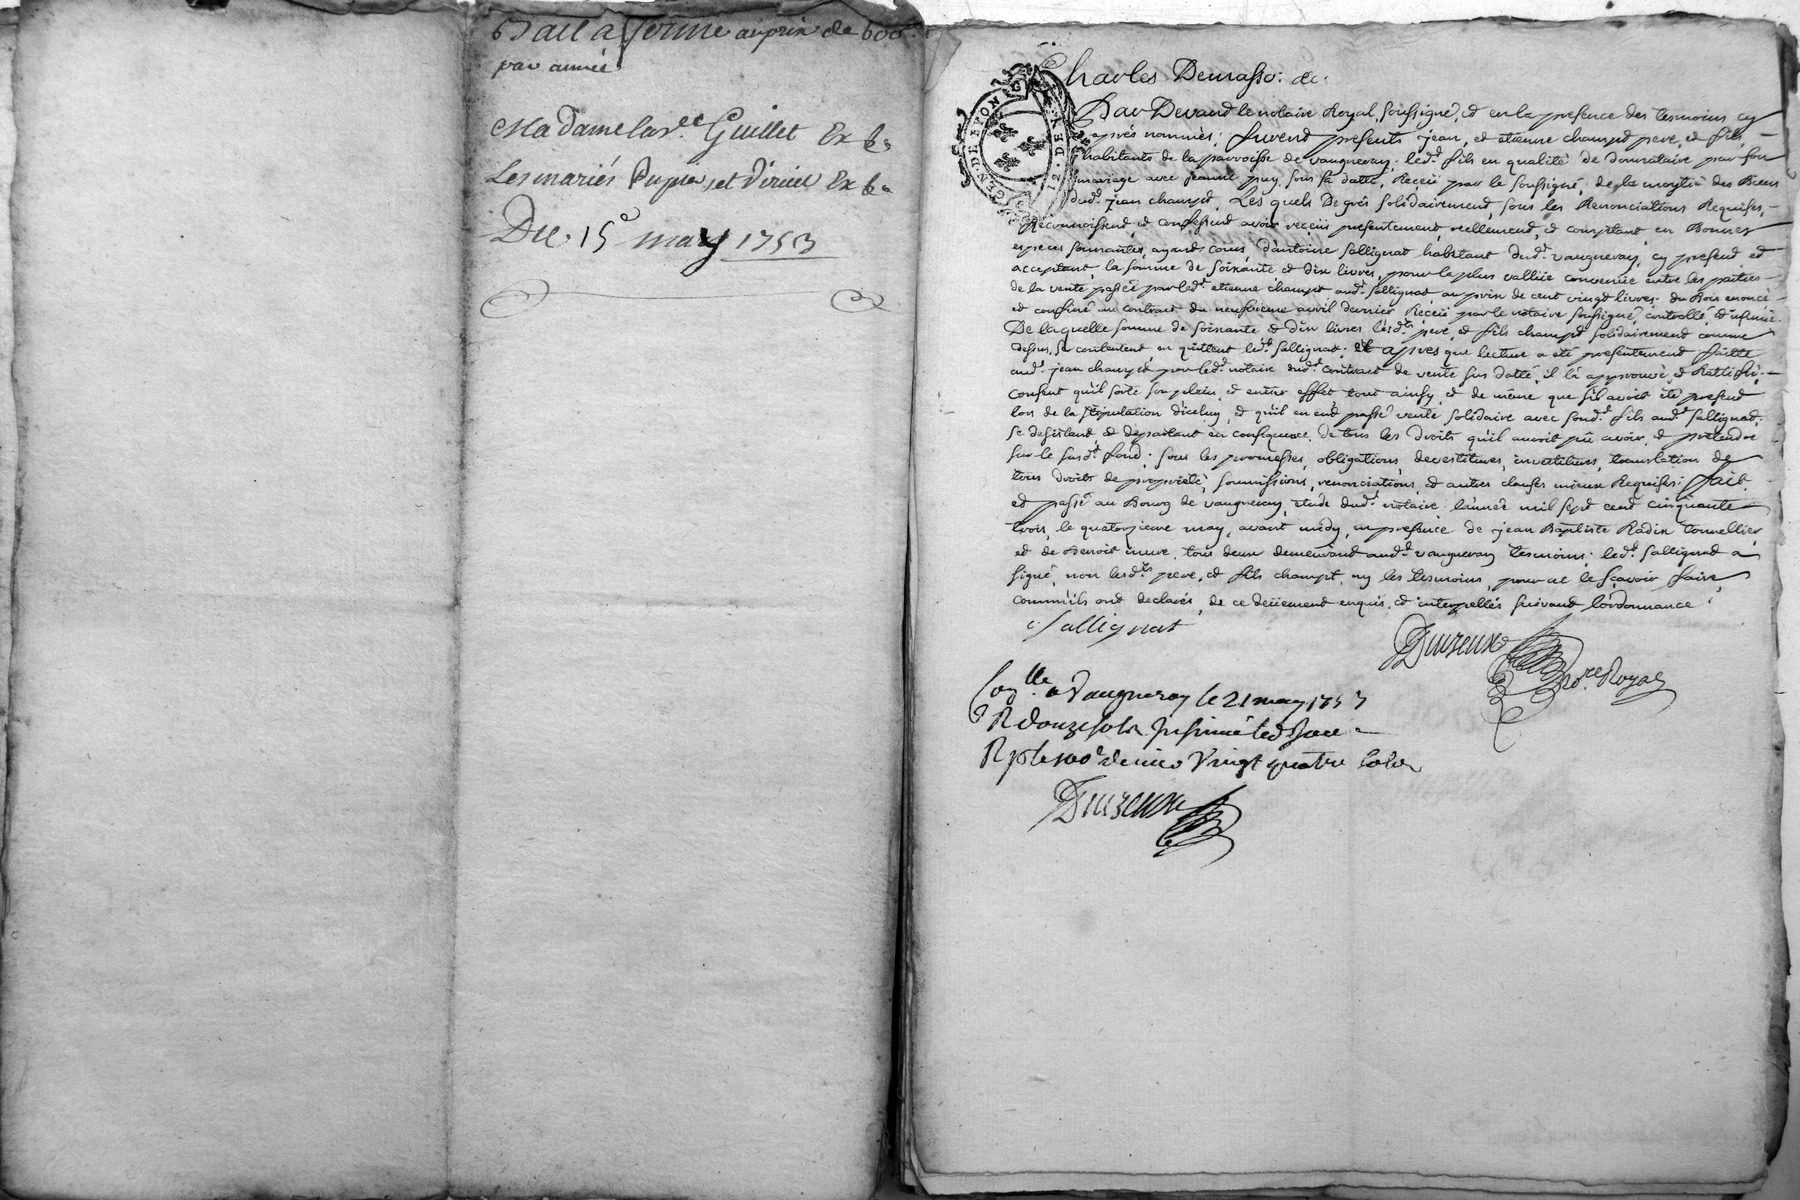 Bail a ferme auprix de 600:
par année
Madame la v.ee Guillet Ex b.
Les mariés Dupra, et Ex b.
Du 15e may 1753
GEN. DE LYON
12. DEN.
Charles Demasso: &c:
Par Devand le notaire Royal, soussigné, et en la presence des tesmoins cy
après nommés; furent presents jean, et etienne champt pere, et fils,
habitants de la parroisse de vaugneray; led.t fils en qualité de donnataire par son
mariage avec jeanne puy, sous sa datte, Receu par le soussigné, de la moytié des Biens
dud.t jean champt. Les quels De grés solidairement, sous les Renonciations Requises,
Reconnoissent, et confessent avoir reçeu presentement, reellement, et comptant, en Bonnes
especes sonnantes, ayant cours, d'antoine sallignat habitant dud.t vaugneray, cy present et
acceptant, la somme de soixante et dix livres, pour la plus vallüe convenüe entre les parties
de la vente passée par led.t etienne champt aud.t sallignat, au prix de cent vingt livres, du Bois enoncé
et confiné au contract du neufvieme avril dernier Receu par le notaire soussigné, controllé, et insinué.
De laquelle somme de soixante et dix livres lesd.ts pere, et fils champt solidairement comme
dessus, se contentent, en quittent led.t sallignat; et apres que lecture a été presentement faitte
aud.t jean champt par led.t notaire dud.t contract de vente sus datté, il l'a approuvé, et Rattifié,
consent qu'il sorte son plein, et entier effet tout ainsy, et de même que s'il avoit été present
lors de la stipulation d'iceluy, et qu'il en eût passé vente solidaire avec sond.t fils aud.t sallignat,
se desistant, et departant en consequence, de tous les droits qu'il auroit pû avoir, et pretendre
sur le susd.t fond; sous les promesses, obligations, devestitures, investitures, translation de
tous droits de propriété, soumissions, renonciations, et autres clauses mieux Requises: fait
et passé au Bourg de vaugneray, etude dud.t notaire l'année mil sept cent cinquante
trois, le quatorzieme may, avant midy, en presence de jean Baptiste Radix tonnellier
et de Benoit tous deux demeurant aud.t vaugneray tesmoins; led.t sallignat a
signé, non lesd.ts pere, et fils champt, ny les tesmoins, pour ne le sçavoir faire,
comm'ils ont declarés, de ce deüement enquis, et interpellés suivant l'ordonnance.
a Sallignat
no.re Royal
Con.lle a Vaugneray le 21 may 1753
R douze sols
vingt quatre sols